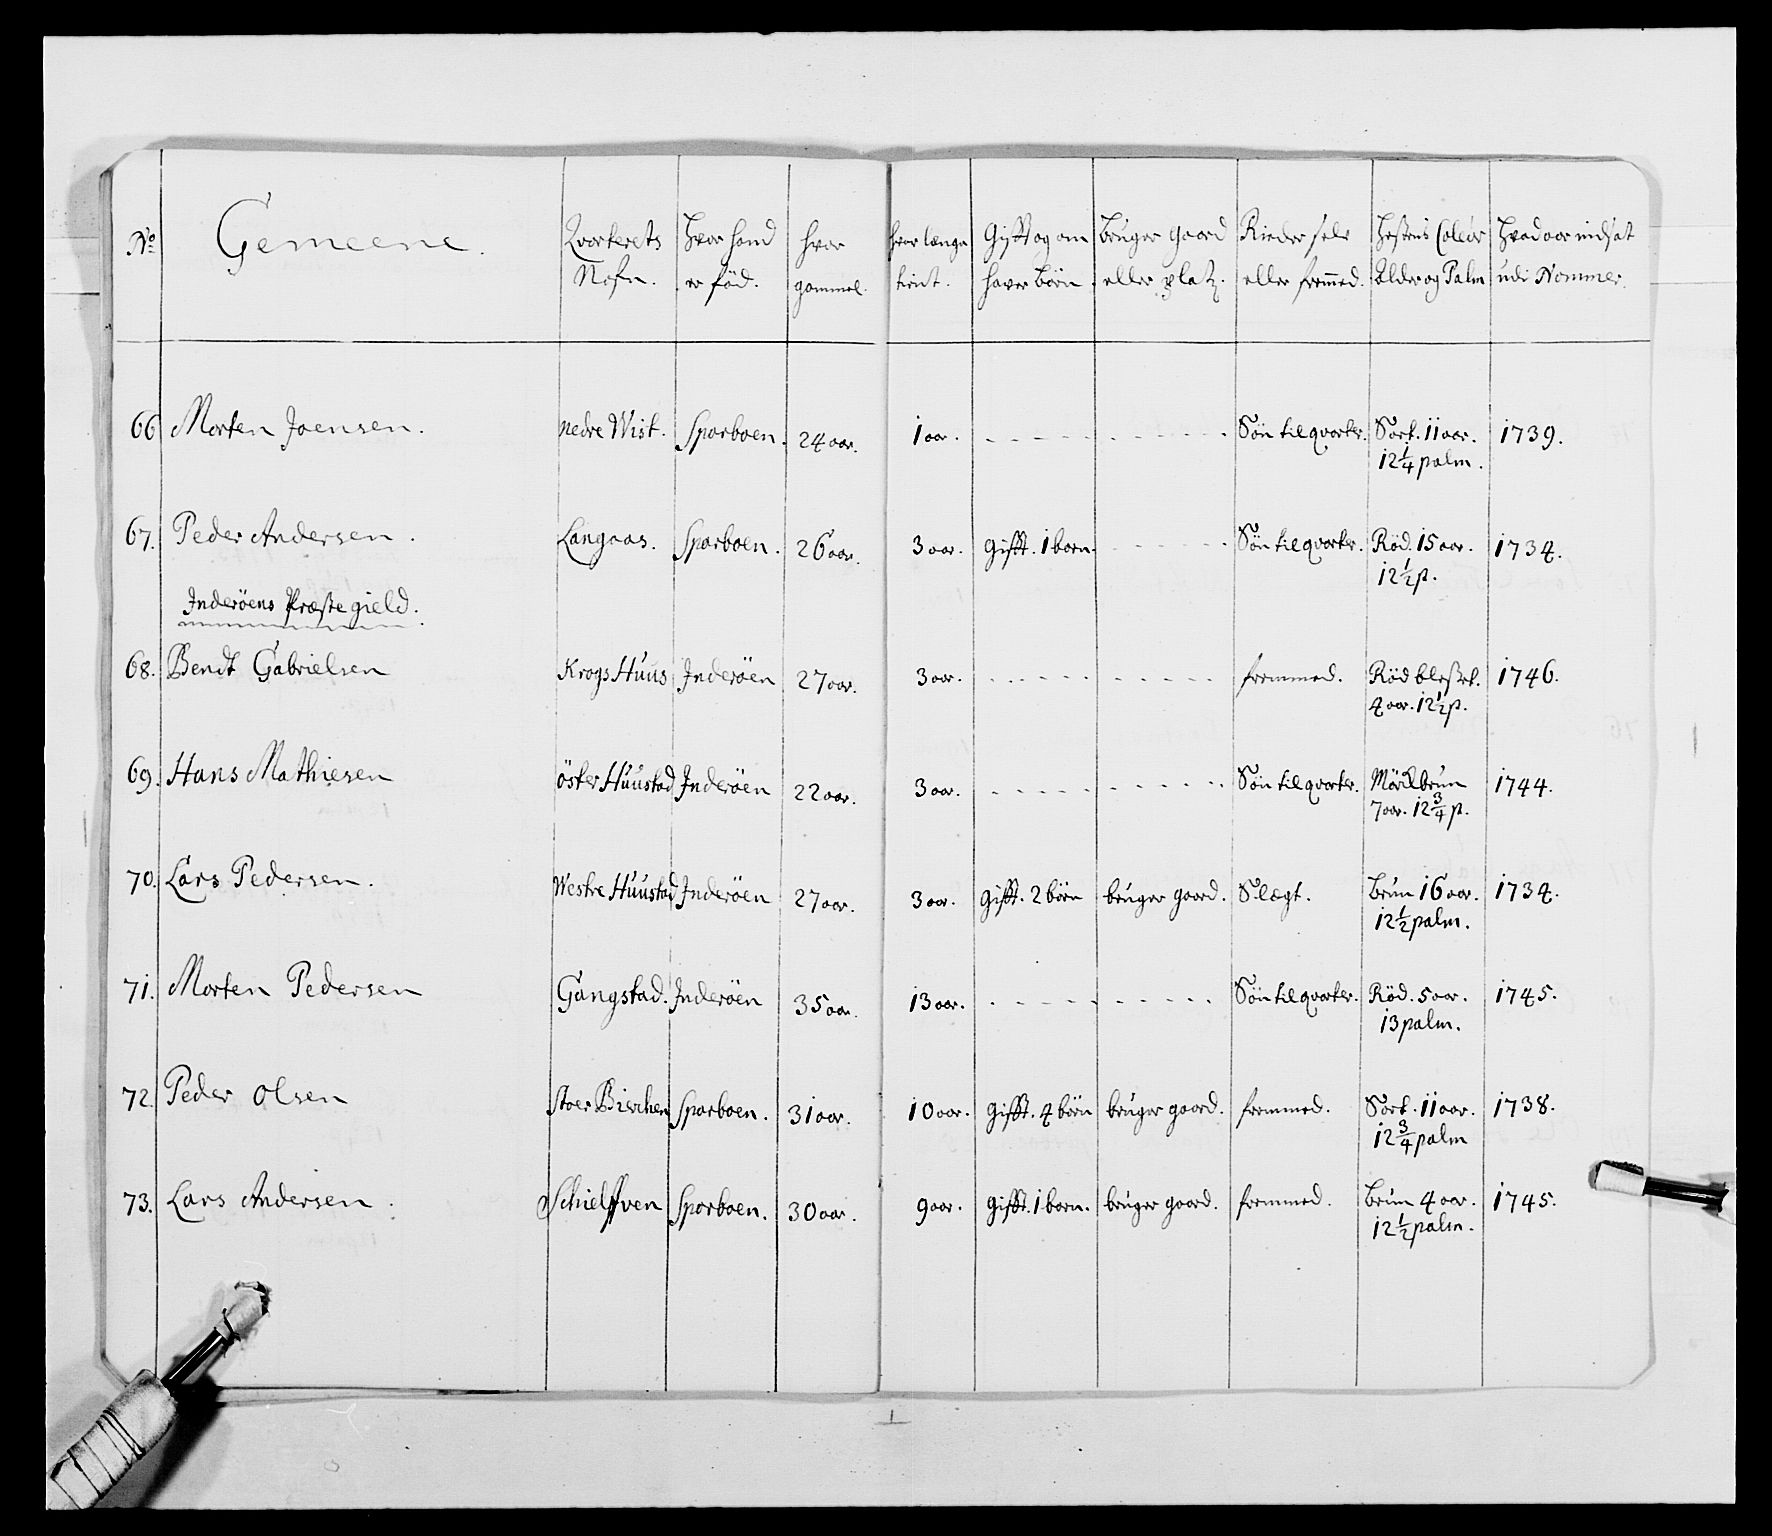 No Gemeene. Qvorterets Hvor hand hvor hvor længe Gifft og om Bruger gaard Rieder selv Hestens Coleur Hvad aar indsat
Nafn. er föd. gammel. tient. haver börn. eller platz. eller fremmed. Alder og Palm udi Nommer.
66 Morten Joensen. nedre Wist. Sparboen. 24 aar. 1 aar. Sön til qvarter. Sort. 11 aar. 1739.
12 1/4 palm.
67. Peder Andersen. Langaas. Sparboen. 26 aar. 3 aar. Gifft. 1 barn. Sön til qvarter. Röd. 15 aar. 1734.
12 1/2 p.
Inderöens Præstegield.
68. Bendt Gabrielsen Krogs Huus Inderöen 27 aar. 3 aar. fremmed. Röd blesset. 1746.
4 aar. 12 1/2 p.
69. Hans Mathiesen öster Huustad Inderöen 22 aar. 3 aar. Sön til qvarter. Mörkbrun 1744.
7 aar. 12 3/4 p.
70. Lars Pedersen. Westre Huustad Inderöen 27 aar. 3 aar. Gifft. 2 börn bruger gaard. Slægt. Brun 16 aar. 1734.
12 1/2 palm.
71. Morten Pedersen Gangstad. Inderöen 35 aar. 13 aar. Sön til qvarter. Röd. 5 aar. 1745.
13 palm.
72. Peder Olsen Stoer Bierchen Sparboen. 31 aar. 10 aar. Gifft. 4 börn bruger gaard. fremmed. Sort. 11 aar. 1738.
12 3/4 palm
73. Lars Andersen. Schielffven Sparboen. 30 aar. 9 aar. Gifft. 1 barn. bruger gaard. fremmed. Brun 4 aar. 1745.
12 1/2 palm.